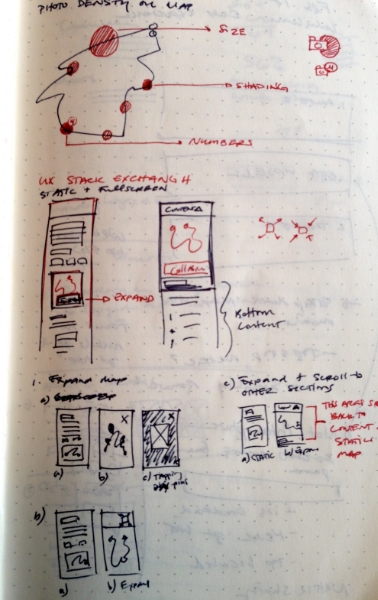 PHOTO DENSITY ON MAP
SIZE
SHADING
NUMBERS
UX STACK EXCHANGE
STATIC + FULLSCREEN
EXPAND
Bottom
Content
1. Expand map
a)
a) b) c)
c) Expand + scroll to
OTHER SECTIONS
BACK TO
CONTENT
STATIC
MAP
a) STATIC
b)
a) b) Expand